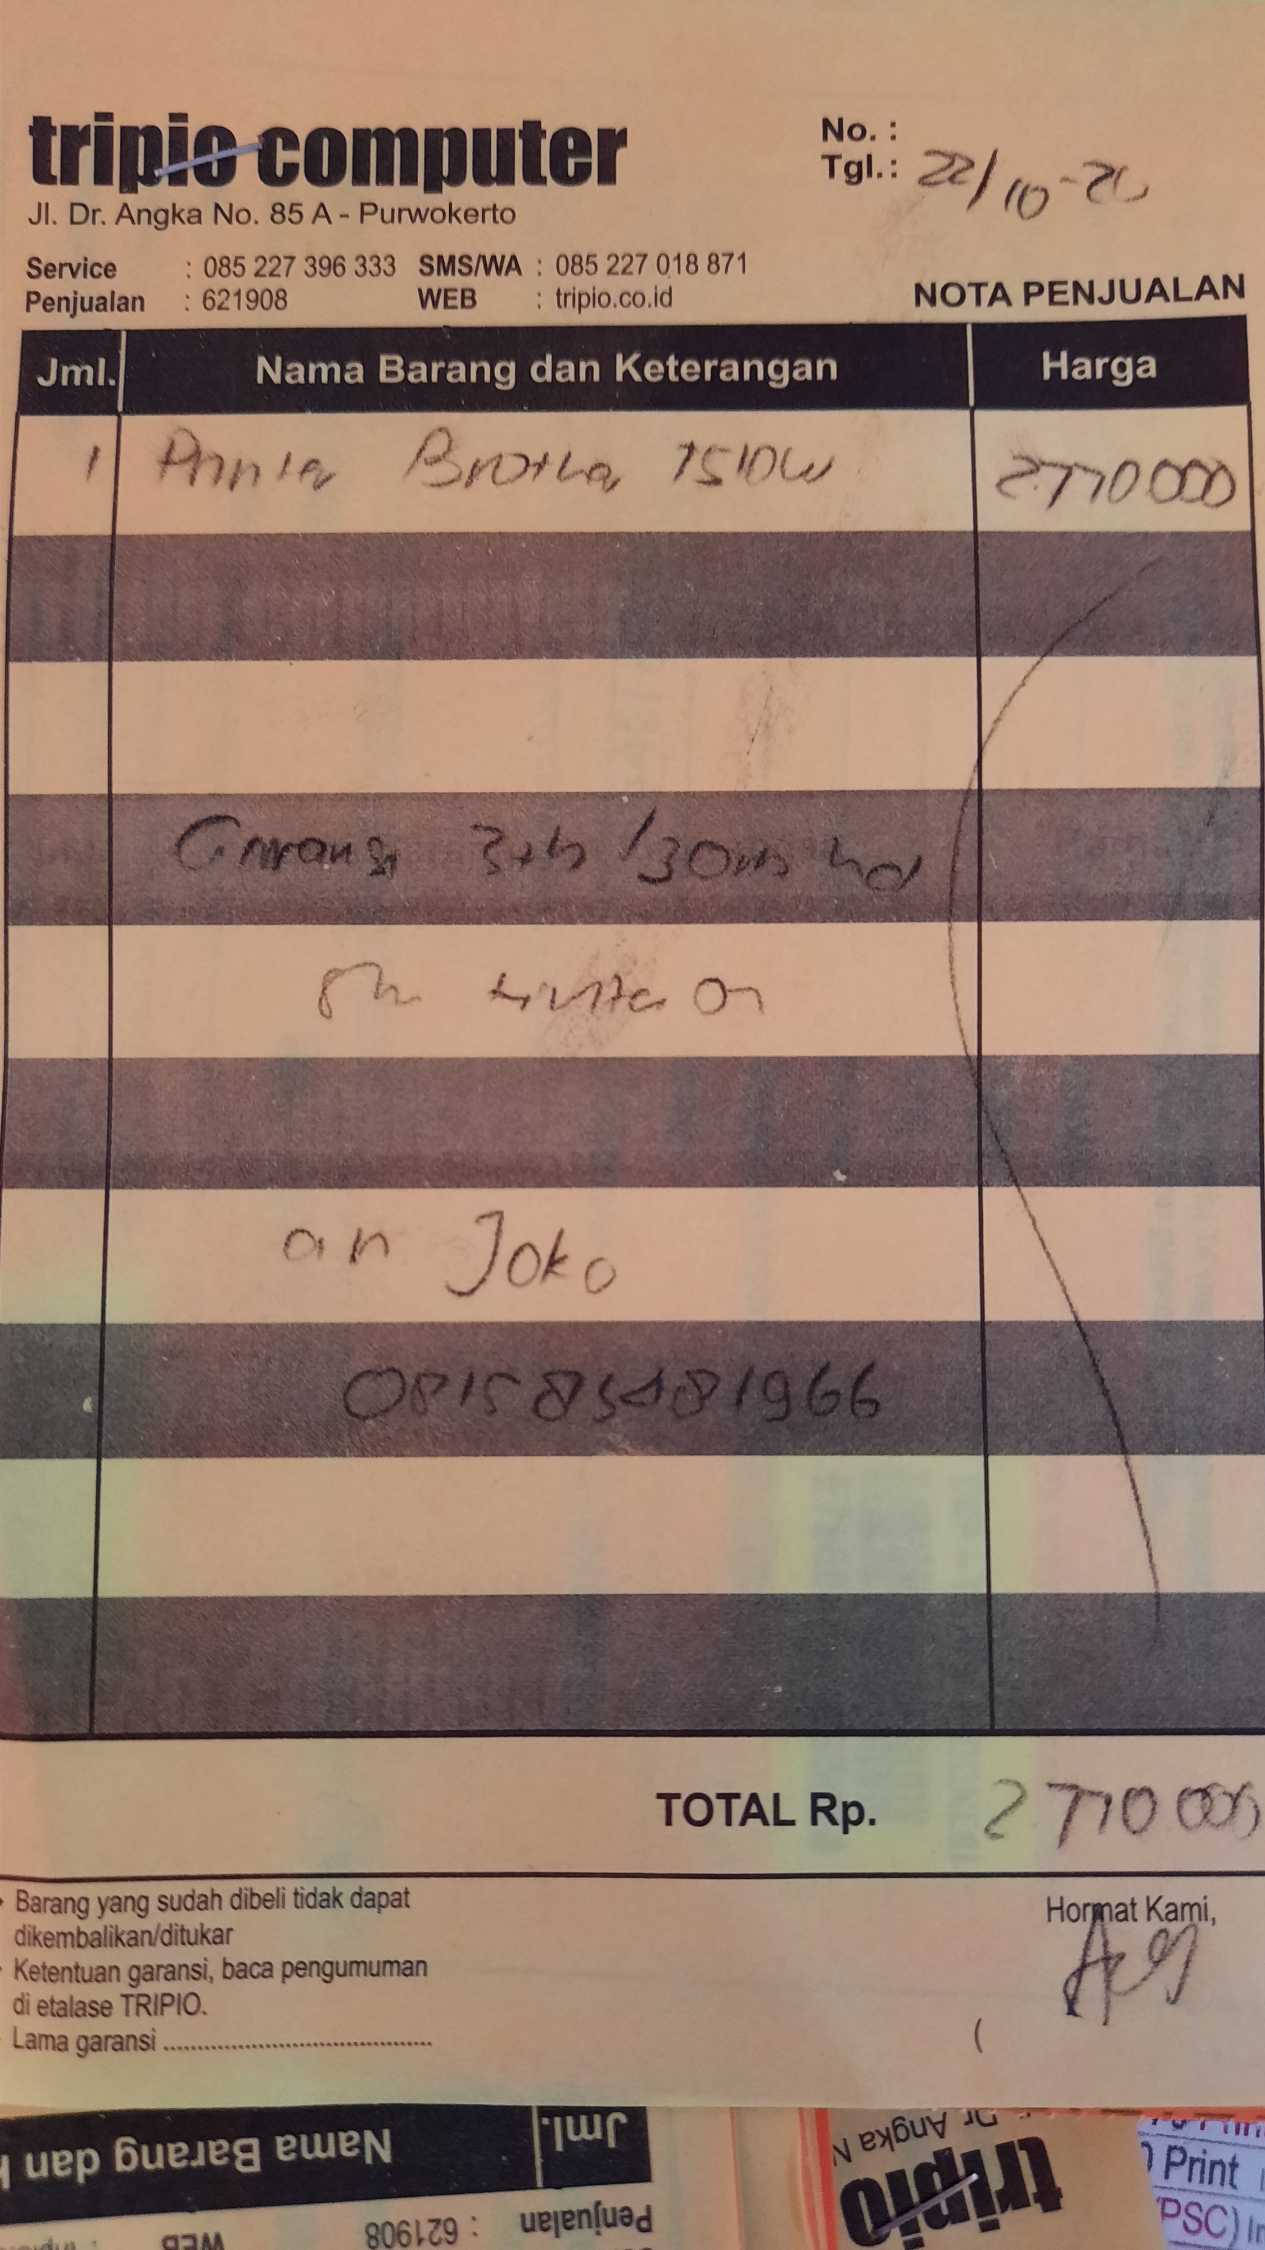 tripio computer
Jl. Dr. Angka No. 85 A - Purwokerto
No. :
Tgl. : 22/10-20
Service : 085 227 396 333 SMS/WA : 085 227 018 871
Penjualan : 621908 WEB : tripio.co.id
NOTA PENJUALAN
Jml. Nama Barang dan Keterangan Harga
1 Printer Brother T510W 2770000
Garansi 3th /30rb
an Joko
081583481966
TOTAL Rp. 2770000
Barang yang sudah dibeli tidak dapat
dikembalikan/ditukar
Ketentuan garansi, baca pengumuman
di etalase TRIPIO.
Lama garansi
Hormat Kami,
Nama Barang dan
Jml.
Penjualan : 621908
WEB
tripio
Dr Angka N
Print
PSC) In